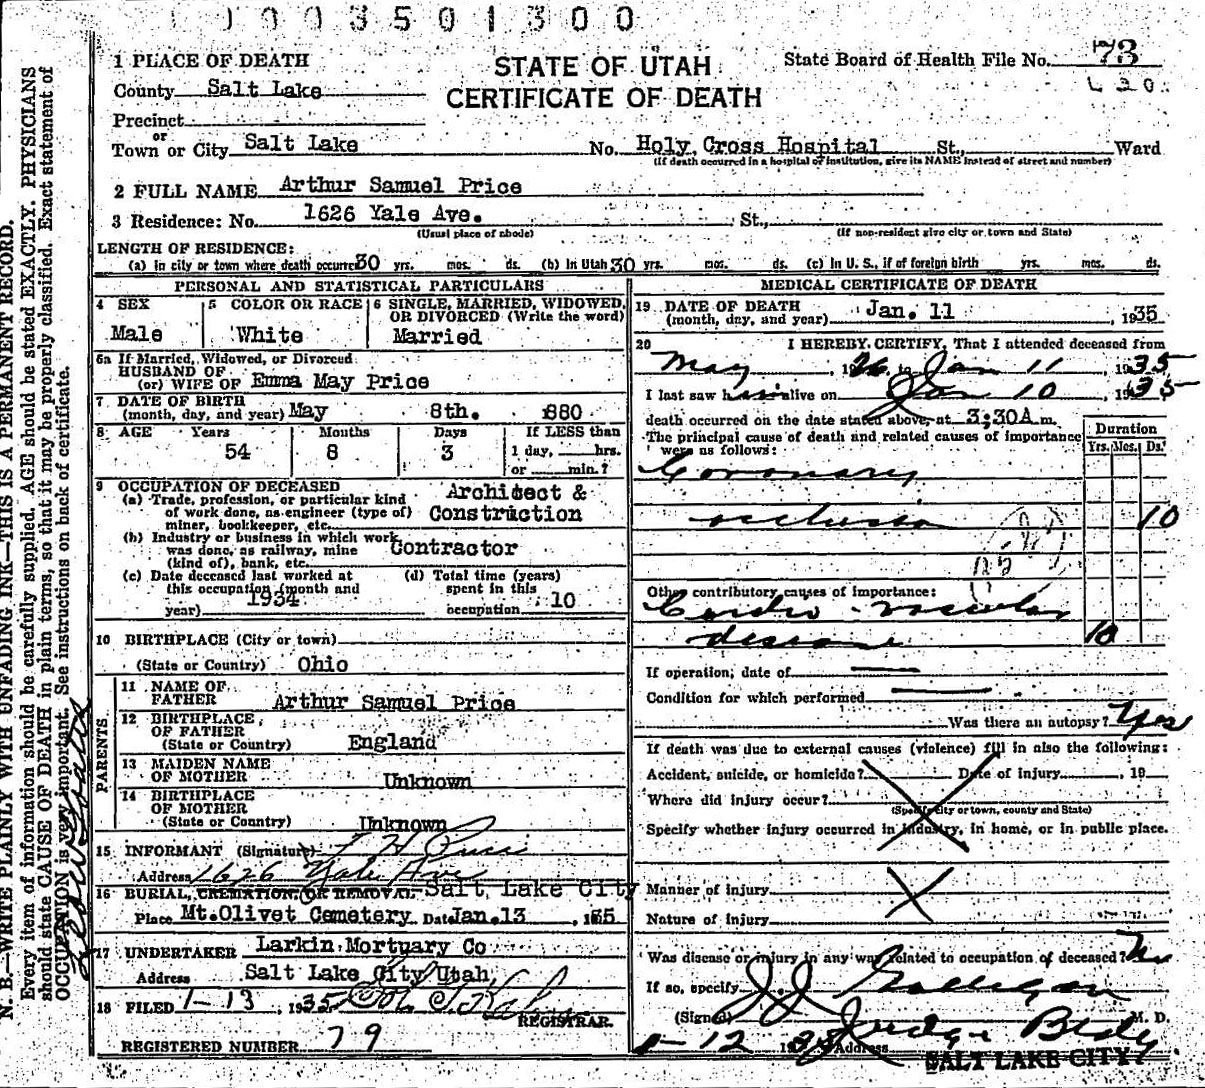 0003501300
1 PLACE OF DEATH
STATE OF UTAH
CERTIFICATE OF DEATH
State Board of Health File No. 73
County Salt Lake
Precinct
or
Town or City Salt Lake No. Holy Cross Hospital St., Ward
(If death occurred in a hospital or institution, give its NAME instead of street and number)
2 FULL NAME Arthur Samuel Price
3 Residence: No. 1626 Yale Ave. St.,
(Usual place of abode) (If non-resident give city or town and State)
LENGTH OF RESIDENCE:
(a) in city or town where death occurred 30 yrs. mos. ds. (b) In Utah 30 yrs. mos. ds. (c) In U. S., if of foreign birth yrs. mos. ds.
PERSONAL AND STATISTICAL PARTICULARS
4 SEX 5 COLOR OR RACE 6 SINGLE, MARRIED, WIDOWED, OR DIVORCED (Write the word)
Male White Married
5a If Married, Widowed, or Divorced
HUSBAND OF
(or) WIFE OF Emma May Price
7 DATE OF BIRTH
(month, day, and year) May 8th. 880
8 AGE Years Months Days If LESS than
54 8 3 1 day, hrs.
or min.?
9 OCCUPATION OF DECEASED
(a) Trade, profession, or particular kind
of work done, as engineer (type of)
miner, bookkeeper, etc.
Architect &
Construction
(b) Industry or business in which work
was done, as railway, mine
(kind of), bank, etc.
Contractor
(c) Date deceased last worked at
this occupation (month and
year) 1934
(d) Total time (years)
spent in this
occupation 10
10 BIRTHPLACE (City or town)
(State or Country) Ohio
PARENTS
11 NAME OF
FATHER Arthur Samuel Price
12 BIRTHPLACE
OF FATHER
(State or Country) England
13 MAIDEN NAME
OF MOTHER Unknown
14 BIRTHPLACE
OF MOTHER
(State or Country) Unknown
15 INFORMANT (Signature)
Address 1626 Yale Ave
16 BURIAL, CREMATION, OR REMOVAL Salt Lake City
Place Mt. Olivet Cemetery Date Jan. 13, 1935
17 UNDERTAKER Larkin Mortuary Co
Address Salt Lake City Utah
18 FILED 1-13, 1935
REGISTRAR.
REGISTERED NUMBER 79
MEDICAL CERTIFICATE OF DEATH
19 DATE OF DEATH
(month, day, and year) Jan. 11, 1935
20 I HEREBY CERTIFY, That I attended deceased from
May, 1926 to Jan 11, 1935
I last saw him alive on Jan 10, 1935
death occurred on the date stated above, at 3;30A m.
The principal cause of death and related causes of importance
were as follows:
Duration
Yrs. Mos. Ds.
Coronary
occlusion 10
Other contributory causes of importance:
Cardio-vascular
disease 10
If operation, date of
Condition for which performed
Was there an autopsy? Yes
If death was due to external causes (violence) fill in also the following:
Accident, suicide, or homicide? Date of injury, 19
Where did injury occur?
(Specify city or town, county and State)
Specify whether injury occurred in industry, in home, or in public place.
Manner of injury
Nature of injury
Was disease or injury in any way related to occupation of deceased? No
If so, specify
(Signed) M. D.
1-12 1935 Address Judge Bldg
SALT LAKE CITY
N. B.—WRITE PLAINLY WITH UNFADING INK—THIS IS A PERMANENT RECORD.
Every item of information should be carefully supplied. AGE should be stated EXACTLY. PHYSICIANS
should state CAUSE OF DEATH in plain terms, so that it may be properly classified. Exact statement of
OCCUPATION is very important. See instructions on back of certificate.